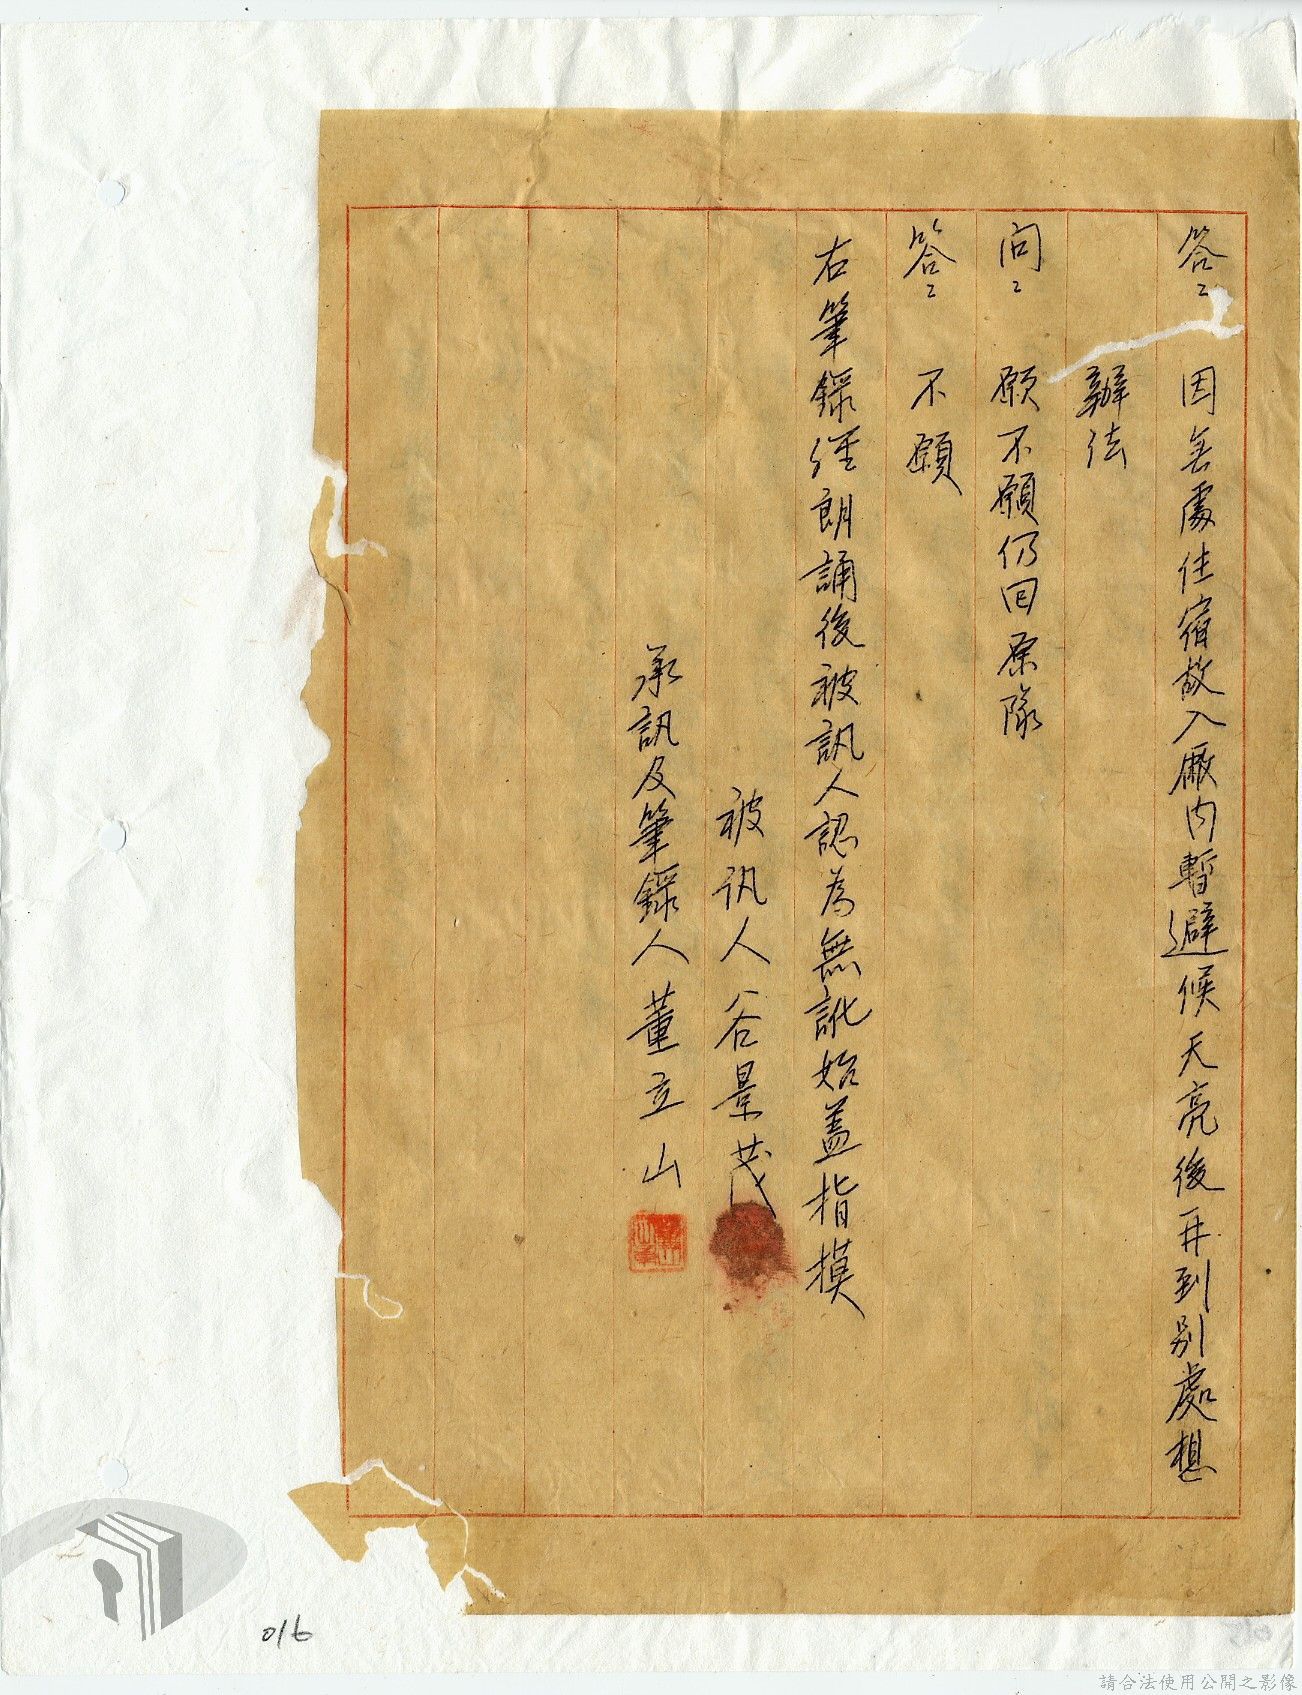 答：因無處住宿故入廠內暫避候天亮後再到別處想
辦法
問：願不願仍回原隊
答：不願
右筆錄經朗誦後被訊人認為無訛始蓋指摸
被訊人谷景茂
承訊及筆錄人董立山
016
請合法使用公開之影像